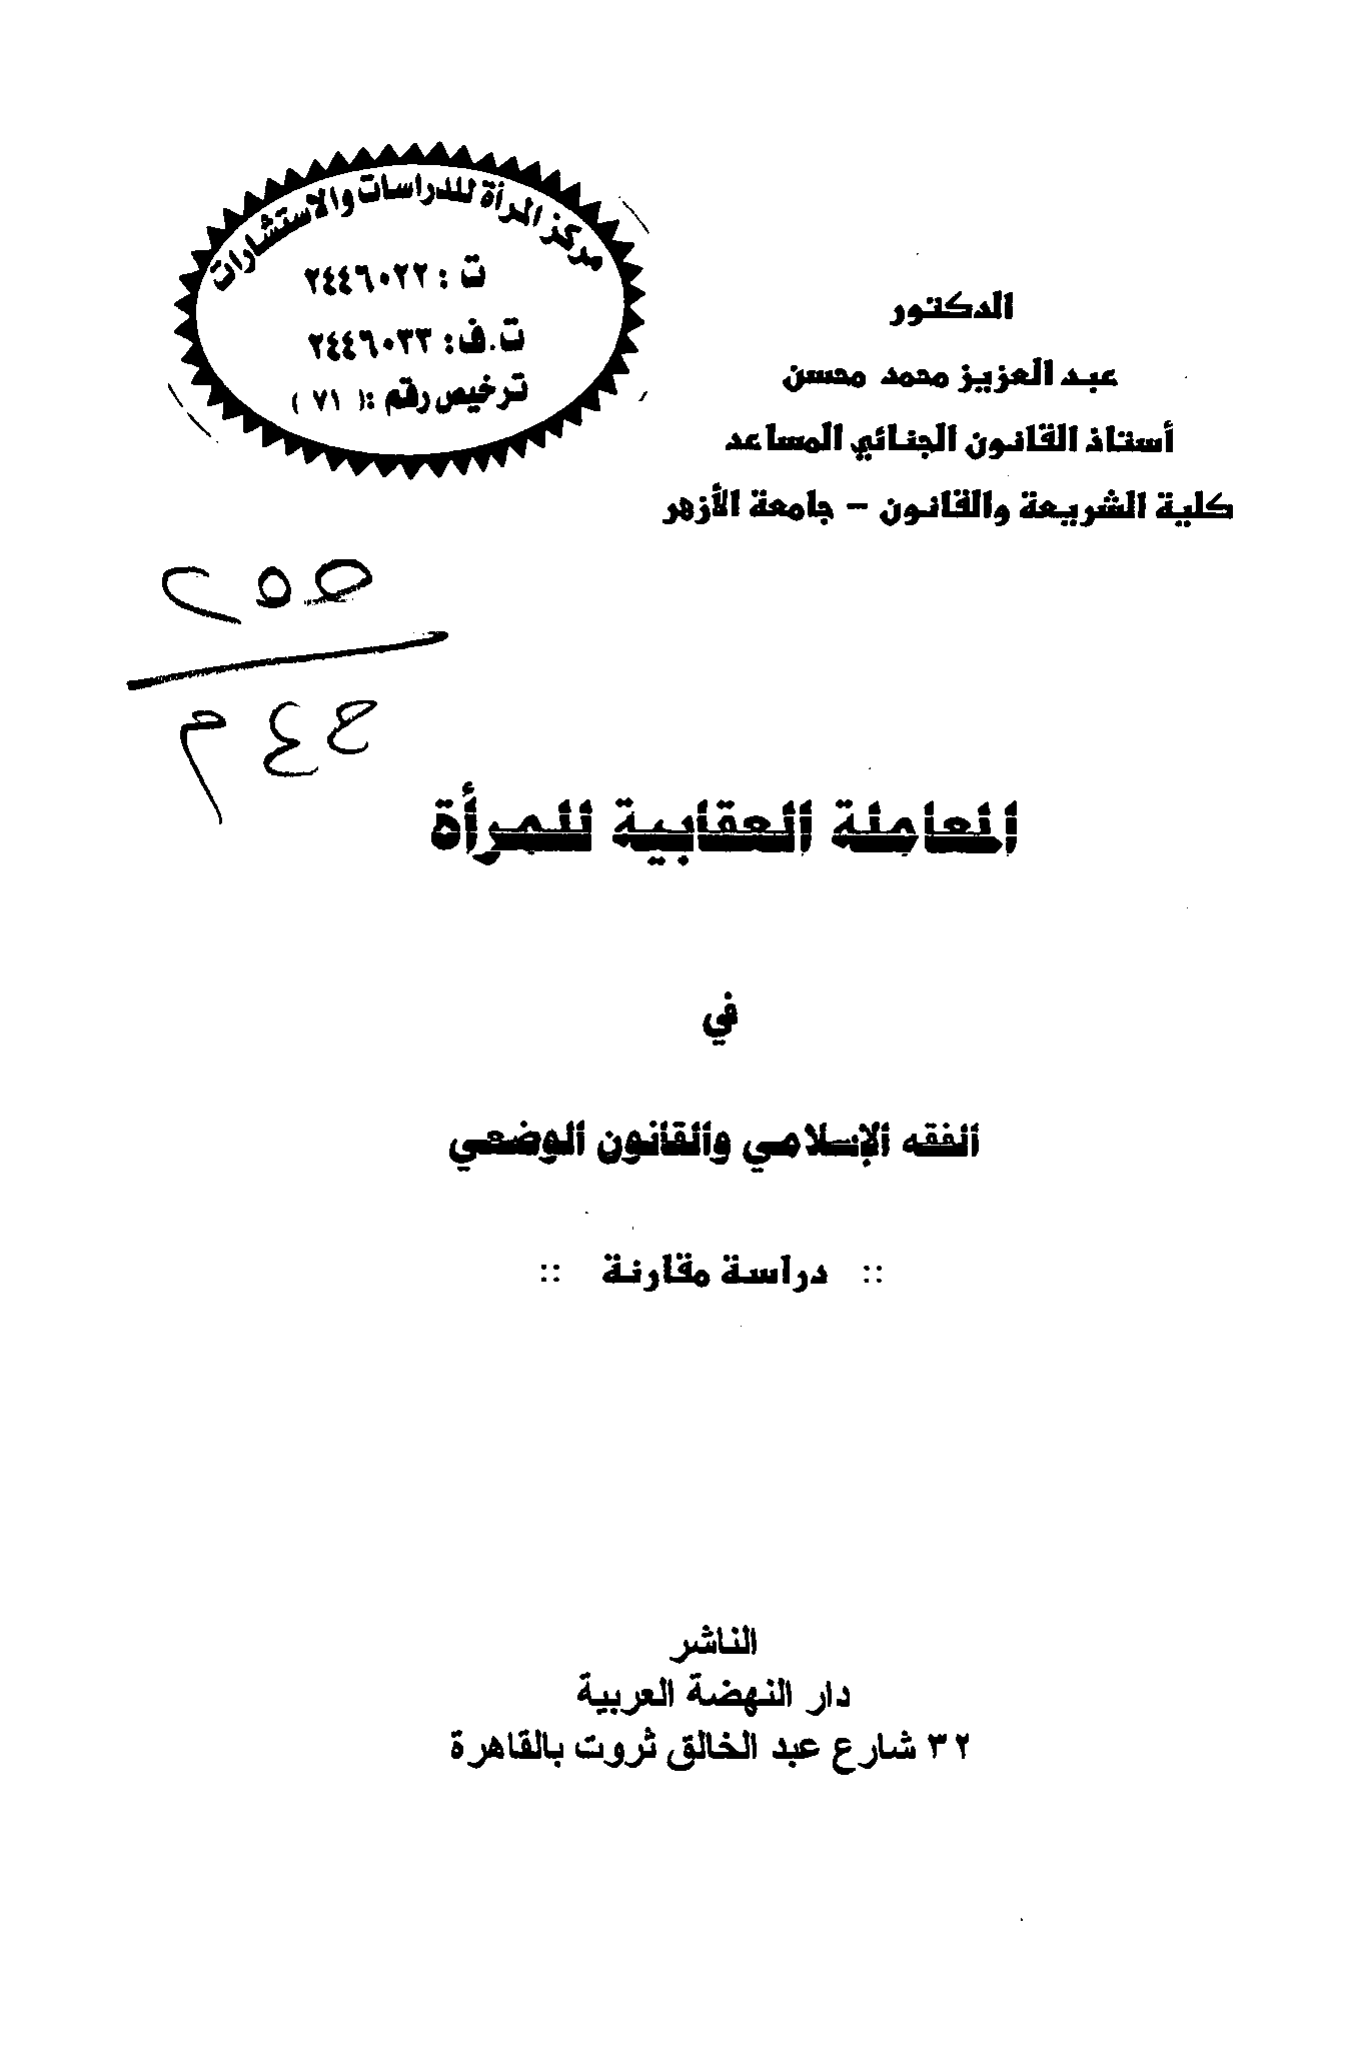 مركز المرأة للدراسات والاستشارات
ت : ٢٤٤٦٠٢٢
ت.ف: ٢٤٤٦٠٣٣
ترخيص رقم :( ٧١ )
الدكتور
عبد العزيز محمد محسن
أستاذ القانون الجنائي المساعد
كلية الشريعة والقانون – جامعة الأزهر
٢٥٥
المعاملة العقابية للمرأة
في
الفقه الإسلامي والقانون الوضعي
:: دراسة مقارنة ::
الناشر
دار النهضة العربية
٣٢ شارع عبد الخالق ثروت بالقاهرة